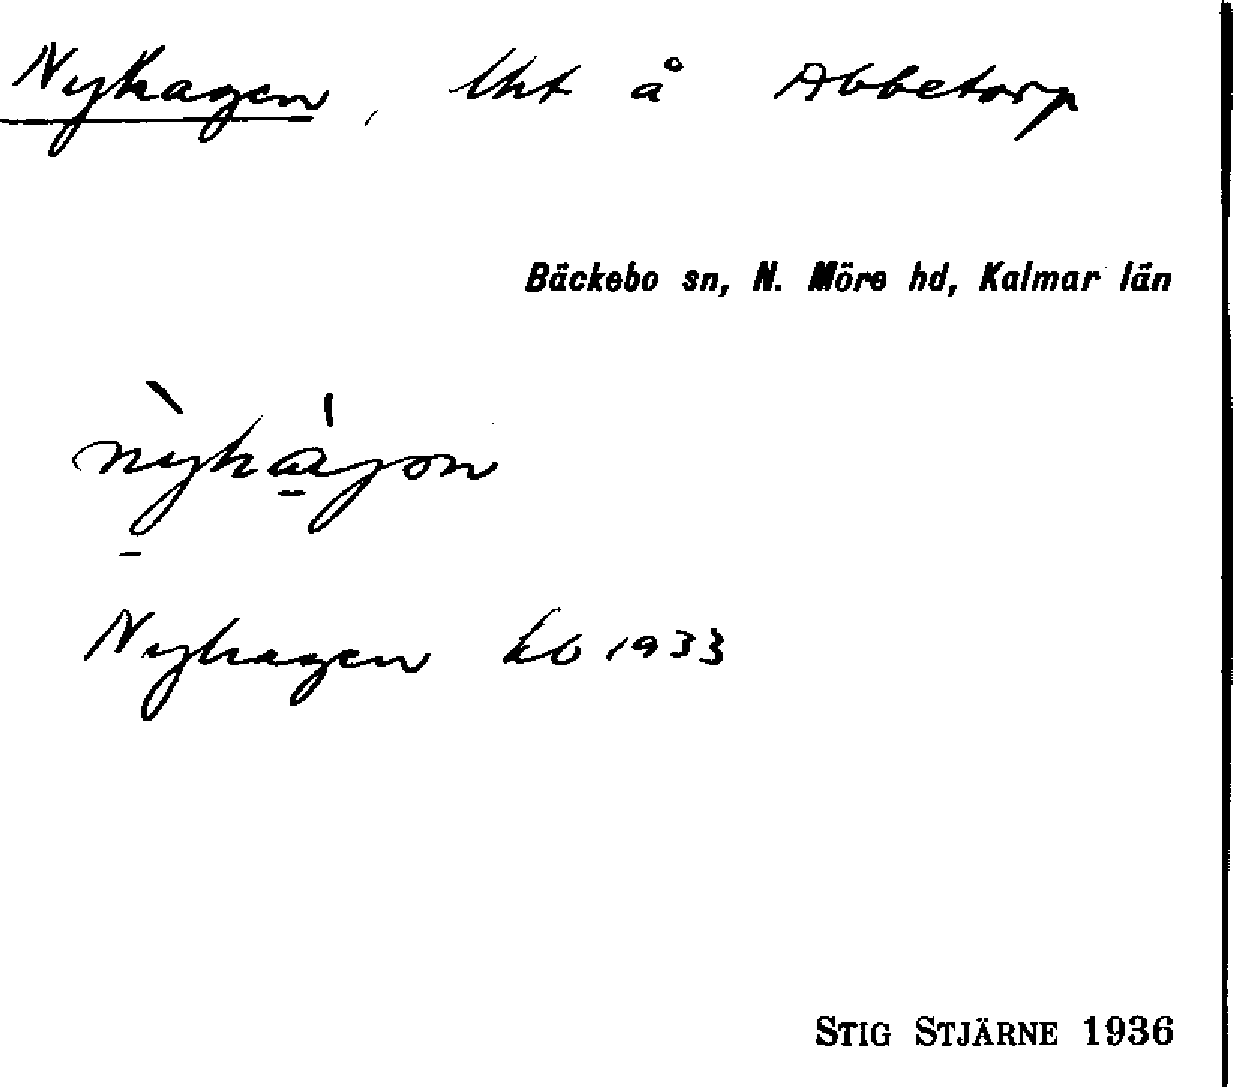 Nyhagen, lht å Abbetorp
Bäckebo sn, N. Möre hd, Kalmar län
nỳhàgon
Nyhagen kb 1933
STIG STJÄRNE 1936